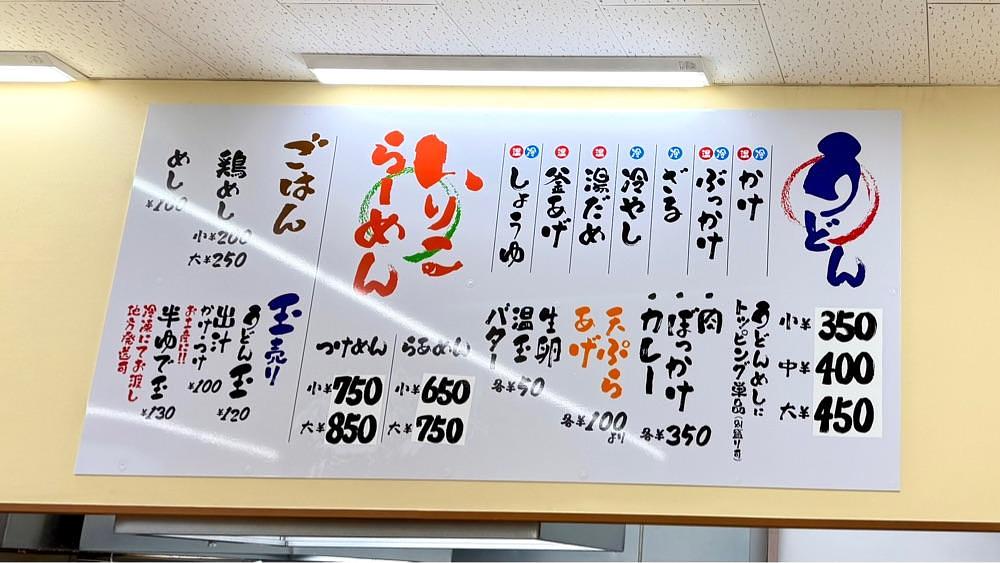 うどん
温 冷
かけ
温 冷
ぶっかけ
冷
ざる
冷
冷やし
温
湯だめ
温
釜あげ
温 冷
しょうゆ
小¥350
中¥400
大¥450
うどんめしに
トッピング単品(別盛り可)
・肉
・ぼっかけ
・カレー
各¥350
天ぷら
あげ
各¥100より
生卵
温玉
バター
各¥50
いりこ
らーめん
らあめん
小¥650
大¥750
つけめん
小¥750
大¥850
ごはん
鶏めし
小¥200
大¥250
めし
¥100
玉売り
うどん玉
¥120
出汁
かけ・つけ
¥100
お土産に!!
半ゆで玉
¥130
冷凍にてお渡し
地方発送可